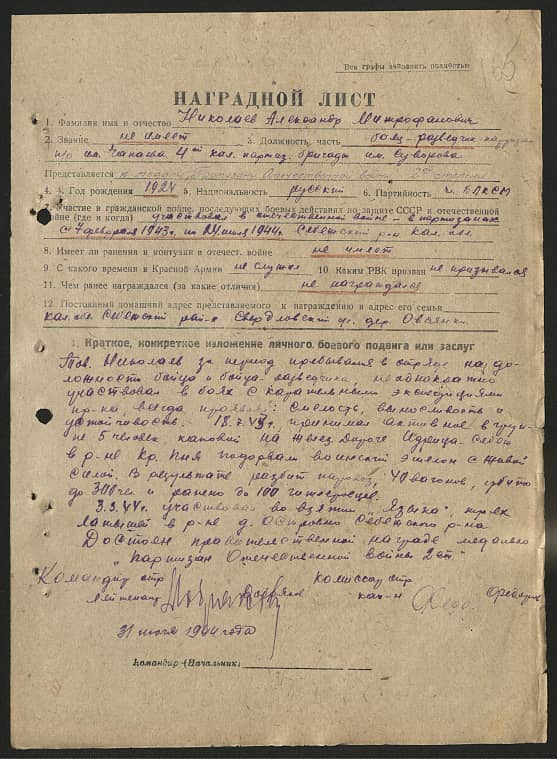 Все графы заполнять полностью
НАГРАДНОЙ ЛИСТ
1. Фамилия имя и отчество Николаев Александр Митрофанович
2. Звание не имеет 3. Должность, часть боец-разведчик
им. Чапаева 4й кал. партиз. бригады им. Суворова
Представляется к медали Партизан Отечественной войны 2й степени
4. 4. Год рождения 1924 5. Национальность русский 6. Партийность чл. ВЛКСМ
7. Участие в гражданской войне, последующих боевых действиях по защите СССР и отечественной
войне (где и когда) участвовал в отечественной войне в партизанах
с 7 февраля 1943г. по 24 июля 1944г. Себежский р-н Кал. обл.
8. Имеет ли ранения и контузии в отечест. войне не имеет
9 С какого времени в Красной Армии не служил 10 Каким РВК призван не призывался
11. Чем ранее награждался (за какие отличия) не награждался
12 Постоянный домашний адрес представляемого к награждению и адрес его семьи
Кал. обл. Себежский рай-н Свердловский дер. Овсянки
1. Краткое, конкретное изложение личного боевого подвига или заслуг
Тов. Николаев за период пребывания в отряде на до-
лжности бойца и бойца-разведчика, неоднократно
участвовал в боях с карательными экспедициями
пр-ка, всегда проявлял смелость, выносливость и
устойчивость. принимал активное в груп-
пе 5 человек на Желез. Дороге Идрица-Себеж
в р-не подорвали воинский эшелон с живой
силой. В результате разбит паровоз, 40 вагонов, убито
до 300 чел и ранено до 100 гитлеровцев.
3.3.44г. участвовал во взятии „Языка", трех
латышей в р-не д. Острово Себежского р-на
Достоен правительственной награде медалью
„Партизан Отечественной войны 2 ст"
Командир отр Комиссар отр
Лейтенант кап-н
31 июля 1944 года
Командир (Начальник)